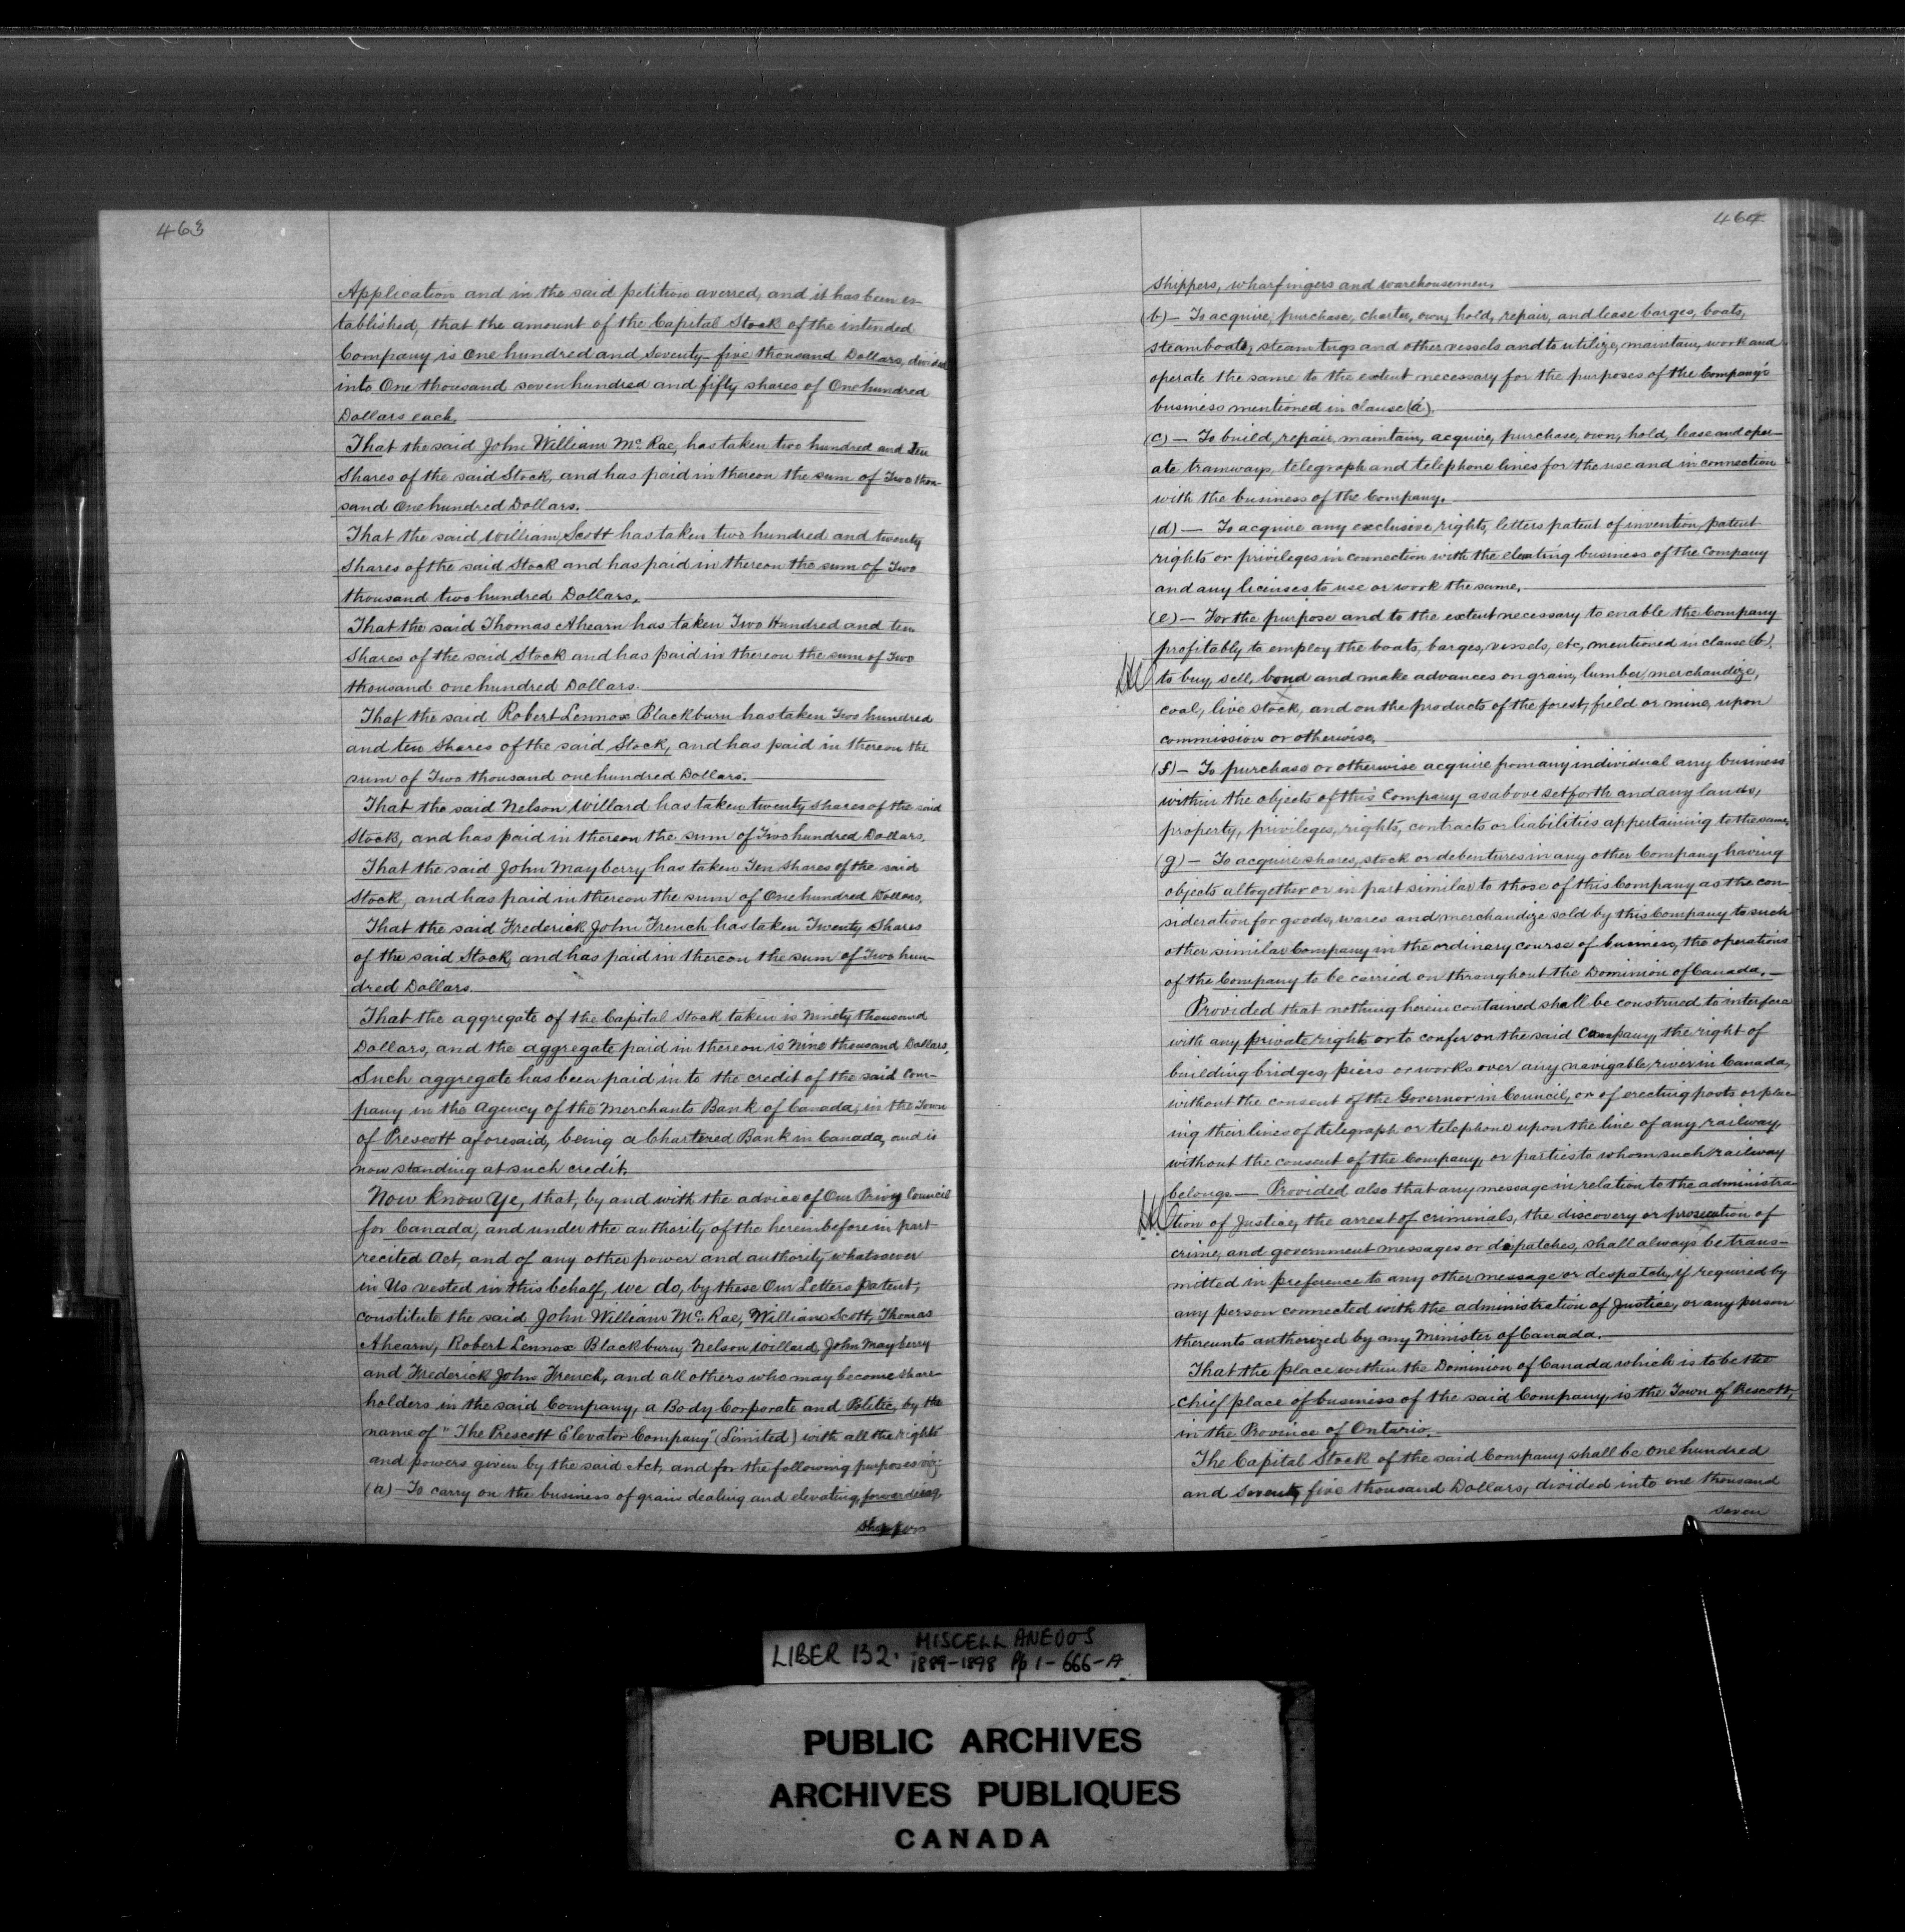 463
Application and in the said petition averred, and it has been es-
tablished, that the amount of the Capital Stock of the intended
Company is One hundred and Seventy-five thousand Dollars, divided
into One thousand seven hundred and fifty shares of One hundred
Dollars each.
That the said John William McRae, has taken two hundred and Ten
Shares of the said Stock, and has paid in thereon the sum of Two thou-
sand One hundred Dollars.
That the said William Scott has taken two hundred and twenty
Shares of the said Stock and has paid in thereon the sum of Two
thousand two hundred Dollars.
That the said Thomas Ahearn has taken Two Hundred and ten
Shares of the said Stock and has paid in thereon the sum of Two
thousand one hundred Dollars.
That the said Robert Lennox Blackburn has taken Two hundred
and ten Shares of the said Stock, and has paid in thereon the
sum of Two thousand one hundred Dollars.
That the said Nelson Willard has taken twenty shares of the said
Stock, and has paid in thereon the sum of Two hundred Dollars.
That the said John Mayberry has taken Ten Shares of the said
Stock, and has paid in thereon the sum of One hundred Dollars.
That the said Frederick John French has taken Twenty Shares
of the said Stock, and has paid in thereon the sum of Two hun-
dred Dollars.
That the aggregate of the Capital Stock taken is Ninety thousand
Dollars, and the aggregate paid in thereon is Nine thousand Dollars,
Such aggregate has been paid in to the credit of the said Com-
pany in the Agency of the Merchants Bank of Canada, in the Town
of Prescott aforesaid, being a Chartered Bank in Canada, and is
now standing at such credit.
Now Know Ye, that, by and with the advice of Our Privy Council
for Canada, and under the authority of the hereinbefore in part
recited Act, and of any other power and authority whatsoever
in Us vested in this behalf, we do, by these Our Letters Patent,
constitute the said John William McRae, William Scott, Thomas
Ahearn, Robert Lennox Blackburn, Nelson Willard, John Mayberry
and Frederick John French, and all others who may become share-
holders in the said Company, a Body Corporate and Politic, by the
name of "The Prescott Elevator Company" (Limited) with all the rights
and powers given by the said Act, and for the following purposes viz:-
(a) To carry on the business of grain dealing and elevating, forwarding,
Shippers
464
Shippers, wharfingers and warehousemen.
(b) — To acquire, purchase, charter, own, hold, repair, and lease barges, boats,
steamboats, steam tugs and other vessels and to utilize, maintain, work and
operate the same to the extent necessary for the purposes of the Company's
business mentioned in clause (a).
(c) — To build, repair, maintain, acquire, purchase, own, hold, lease and oper-
ate tramways, telegraph and telephone lines for the use and in connection
with the business of the Company.
(d) — To acquire any exclusive rights, letters patent of invention, patent
rights or privileges in connection with the elevating business of the Company
and any licenses to use or work the same.
(e) — For the purpose and to the extent necessary to enable the Company
profitably to employ the boats, barges, vessels, etc, mentioned in clause (b).
to buy, sell, bond and make advances on grain, lumber, merchandize,
coal, live stock, and on the products of the forest, field or mine, upon
commission or otherwise.
(f) — To purchase or otherwise acquire from any individual any business
within the objects of this Company as above set forth and any lands,
property, privileges, rights, contracts or liabilities appertaining to the same.
(g) — To acquire shares, stock or debentures in any other Company having
objects altogether or in part similar to those of this Company as the con-
sideration for goods, wares and merchandize sold by this Company to such
other similar Company in the ordinary course of business, the operations
of the Company to be carried on throughout the Dominion of Canada. —
Provided that nothing herein contained shall be construed to interfere
with any private rights or to confer on the said Company, the right of
building bridges, piers or works over any navigable river in Canada,
without the consent of the Governor in Council, or of erecting posts or plac-
ing their lines of telegraph or telephone upon the line of any railway,
without the consent of the Company, or parties to whom such railway
belongs — Provided also that any message in relation to the administra-
tion of Justice, the arrest of criminals, the discovery or prosecution of
crime, and government messages or dispatches, shall always be trans-
mitted in preference to any other message or despatch, if required by
any person connected with the administration of Justice, or any person
thereunto authorized by any Minister of Canada. —
That the place within the Dominion of Canada which is to be the
chief place of business of the said Company, is the Town of Prescott,
in the Province of Ontario. —
The Capital Stock of the said Company shall be one hundred
and Seventy five thousand Dollars, divided into one thousand
seven
LIBER 132. MISCELLANEOUS
1889-1898 Pp 1-666-A
PUBLIC ARCHIVES
ARCHIVES PUBLIQUES
CANADA